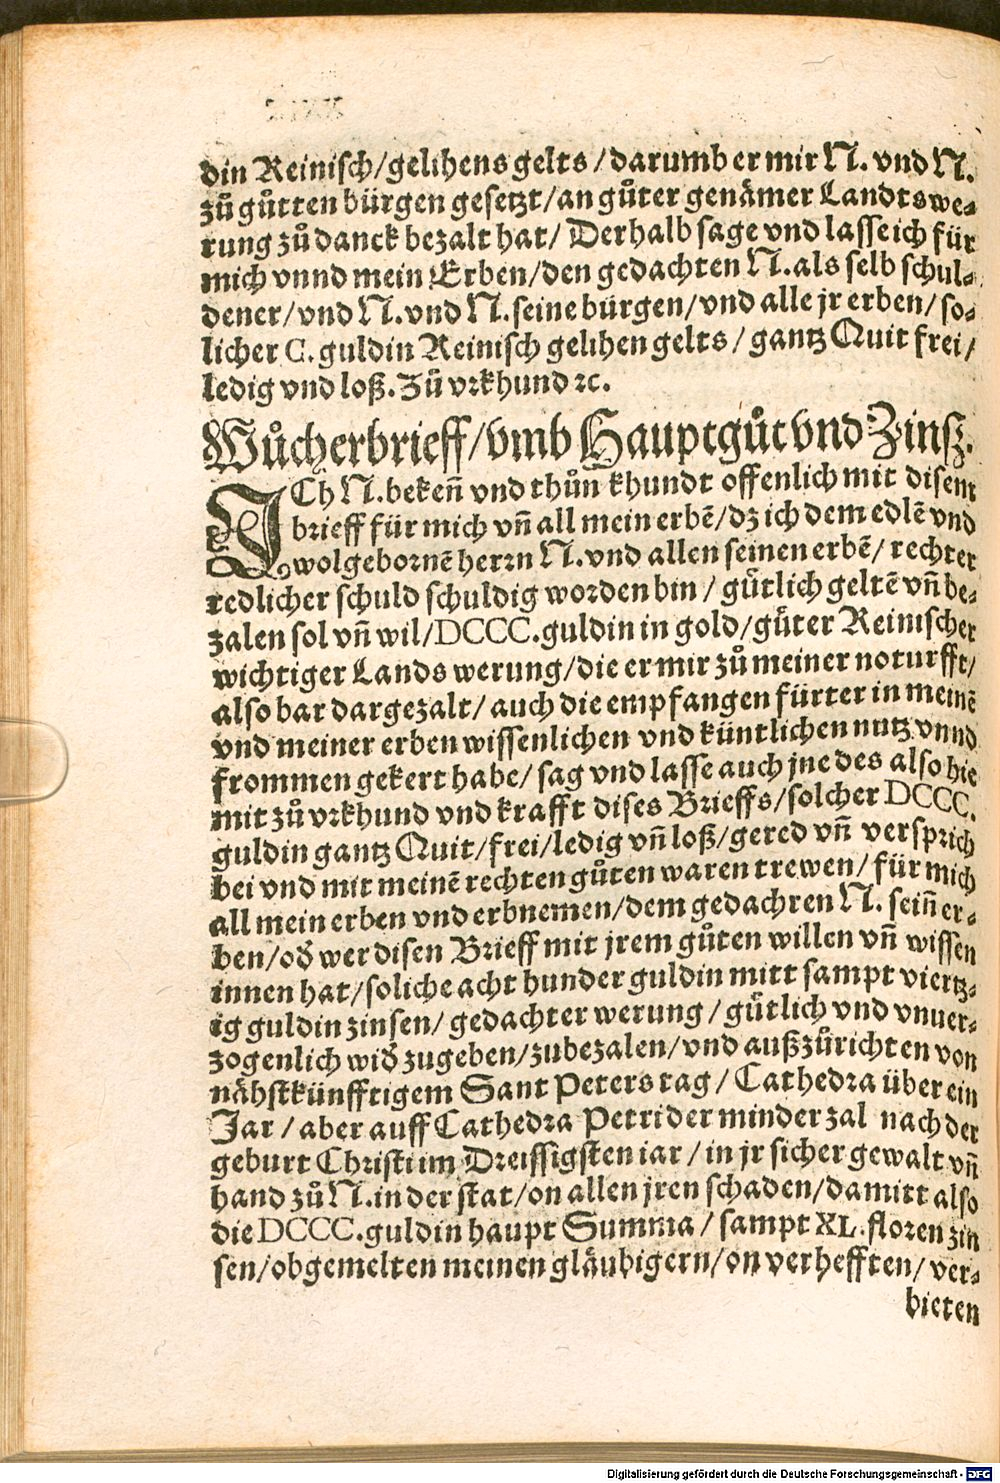 din Reinisch/gelihens gelts/darumb er mir N. vnd N.
zů gůtten bürgen gesetzt/an gůter genämer Landtswe-
rung zů danck bezalt hat/ Derhalb sage vnd lasse ich für
mich vnnd mein Erben/den gedachten N. als selb schul-
dener/vnd N. vnd N. seine bürgen/vnd alle jr erben/so-
licher C. guldin Reinisch gelihen gelts/gantz Quit frei/
ledig vnd loß. Zů vrkhund ꝛc.
Wůcherbrieff/vmb Hauptgůt vnd Zinsz.
ICh N. bekeñ vnd thůn khundt offenlich mit disem
brieff für mich vñ all mein erbẽ/dz ich dem edlẽ vnd
wolgebornẽ herrn N. vnd allen seinen erbẽ/ rechter
redlicher schuld schuldig worden bin/gůtlich geltẽ vñ be-
zalen sol vñ wil/DCCC. guldin in gold/gůter Reinischer
wichtiger Lands werung/die er mir zů meiner noturfft/
also bar dargezalt/auch die empfangen fürter in meinẽ
vnd meiner erben wissenlichen vnd küntlichen nutz vnnd
frommen gekert habe/sag vnd lasse auch jne des also hie
mit zů vrkhund vnd krafft dises Brieffs/solcher DCCC.
guldin gantz Quit/frei/ledig vñ loß/gered vñ versprich
bei vnd mit meinẽ rechten gůten waren trewen/für mich
all mein erben vnd erbnemen/dem gedachren N. seiñ er-
ben/oð wer disen Brieff mit jrem gůten willen vñ wissen
innen hat/soliche acht hunder guldin mitt sampt viertz-
ig guldin zinsen/gedachter werung/gůtlich vnd vnuer-
zogenlich wið zugeben/zubezalen/vnd außzůrichten von
nähstkünfftigem Sant Peters tag/Cathedra über ein
Jar/aber auff Cathedra Petri der minder zal nach der
geburt Christi im Dreissigsten iar/in jr sicher gewalt vñ
hand zů N. in der stat/on allen jren schaden/damitt also
die DCCC. guldin haupt Summa/sampt XL. floren zin
sen/obgemelten meinen gläubigern/on verhefften/ver-
bieten
Digitalisierung gefördert durch die Deutsche Forschungsgemeinschaft - DFG